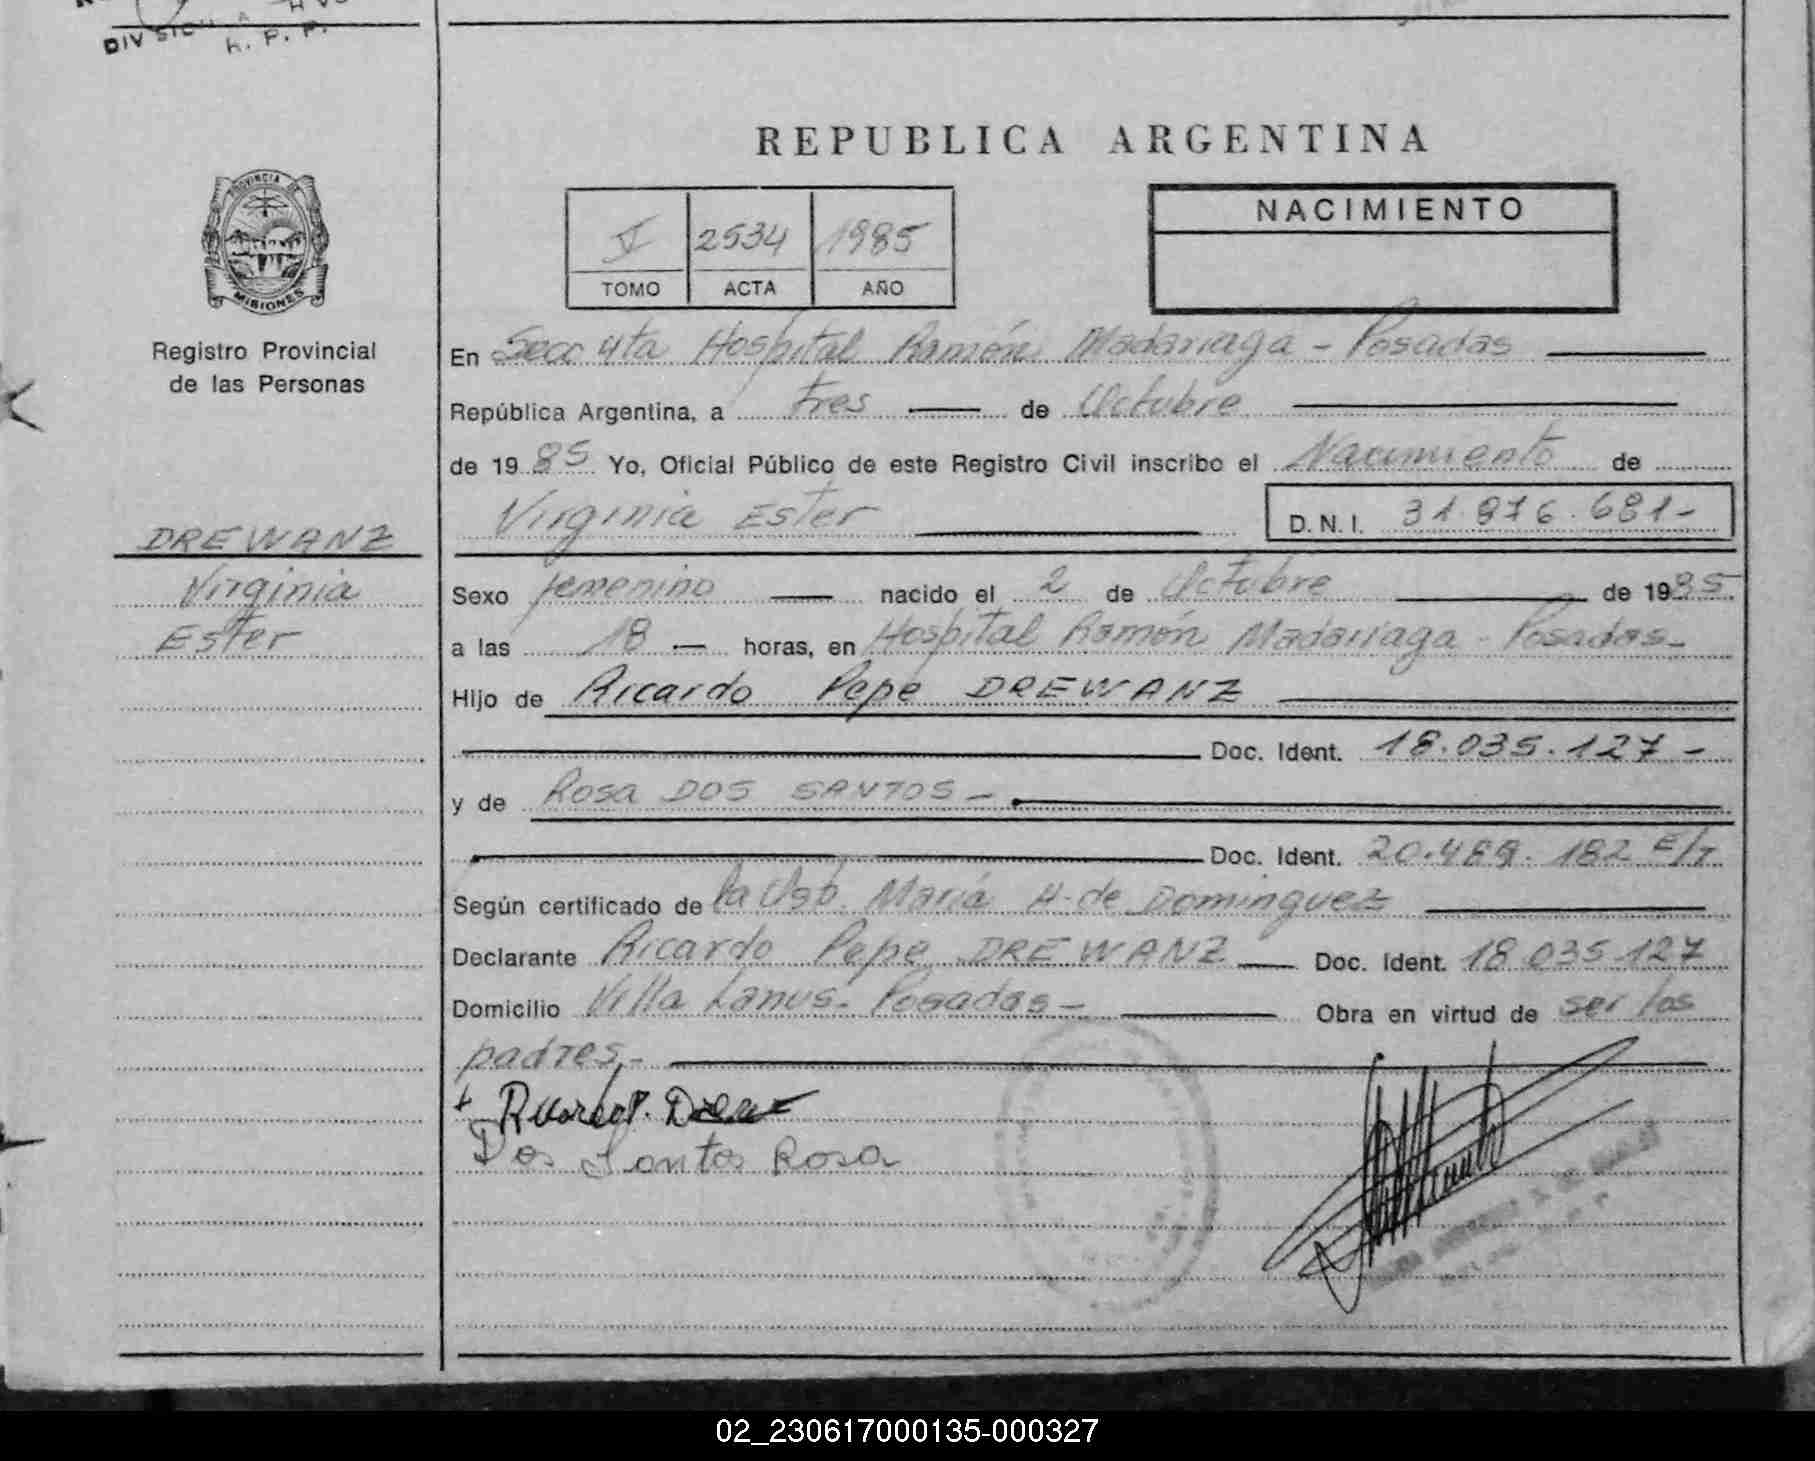 DIVISION A
R. P. P.
REPUBLICA ARGENTINA
PROVINCIA DE
MISIONES
Registro Provincial
de las Personas
DREWANZ
Virginia
Ester
2534 1985
TOMO ACTA AÑO
NACIMIENTO
En Secc 4ta Hospital Ramón Madariaga - Posadas
República Argentina, a tres de Octubre
de 1985 Yo, Oficial Público de este Registro Civil inscribo el Nacimiento de
Virginia Ester D.N.I. 31.876.681-
Sexo femenino nacido el 2 de Octubre de 1985.
a las 18 — horas, en Hospital Ramón Madariaga - Posadas-
Hijo de Ricardo Pepe DREWANZ
Doc. Ident. 18.035.127 -
y de Rosa DOS SANTOS -
Doc. Ident. 20.489.182 E/T
Según certificado de la Obst. María H. de Dominguez
Declarante Ricardo Pepe DREWANZ — Doc. Ident. 18.035.127
Domicilio Villa Lanus- Posadas- Obra en virtud de ser los
padres.-
Dos Santos Rosa
02_230617000135-000327